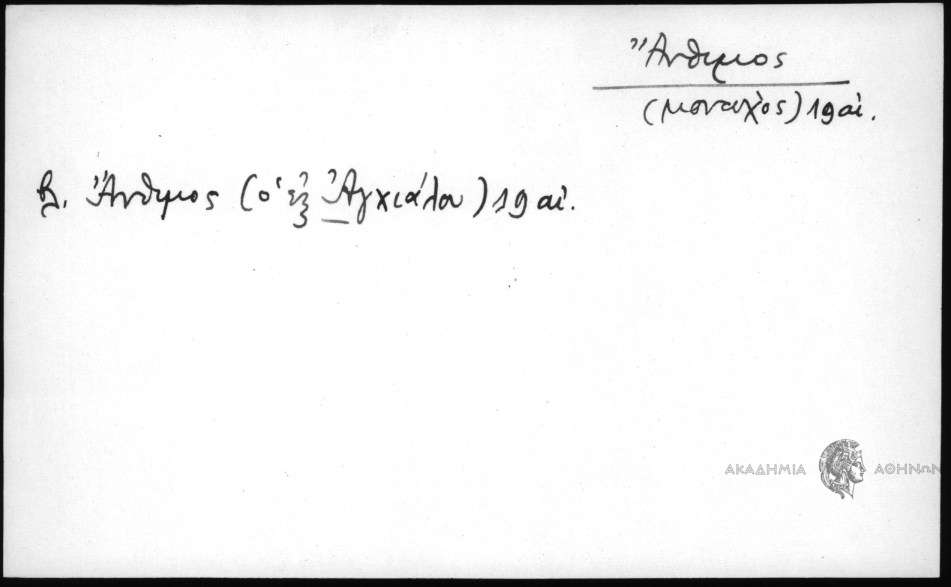 Ἄνθιμος
(μοναχὸς) 19 αἰ.
β. Ἄνθιμος (ὁ ἐξ Ἀγχιάλου) 19 αἰ.
ΑΚΑΔΗΜΙΑ ΑΘΗΝΩΝ